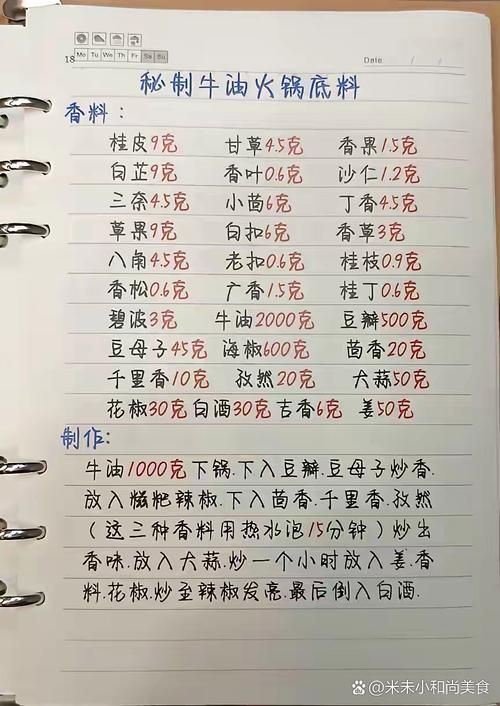 18 Mo Tu We Th Fr Sa Su Date / /
秘制牛油火锅底料
香料：
桂皮9克 甘草4.5克 香果1.5克
白芷9克 香叶0.6克 沙仁1.2克
三奈4.5克 小茴6克 丁香4.5克
草果9克 白扣6克 香草3克
八角4.5克 老扣0.6克 桂枝0.9克
香松0.6克 广香1.5克 桂丁0.6克
碧波3克 牛油2000克 豆瓣500克
豆母子45克 海椒600克 茴香20克
千里香10克 孜然20克 大蒜50克
花椒30克 白酒30克 吉香6克 姜50克
制作:
牛油1000克下锅.下入豆瓣.豆母子炒香.
放入糍粑辣椒.下入茴香.千里香.孜然
(这三种香料用热水泡15分钟)炒出
香味.放入大蒜.炒一个小时放入姜.香
料.花椒.炒至辣椒发亮.最后倒入白酒.
@米未小和尚美食